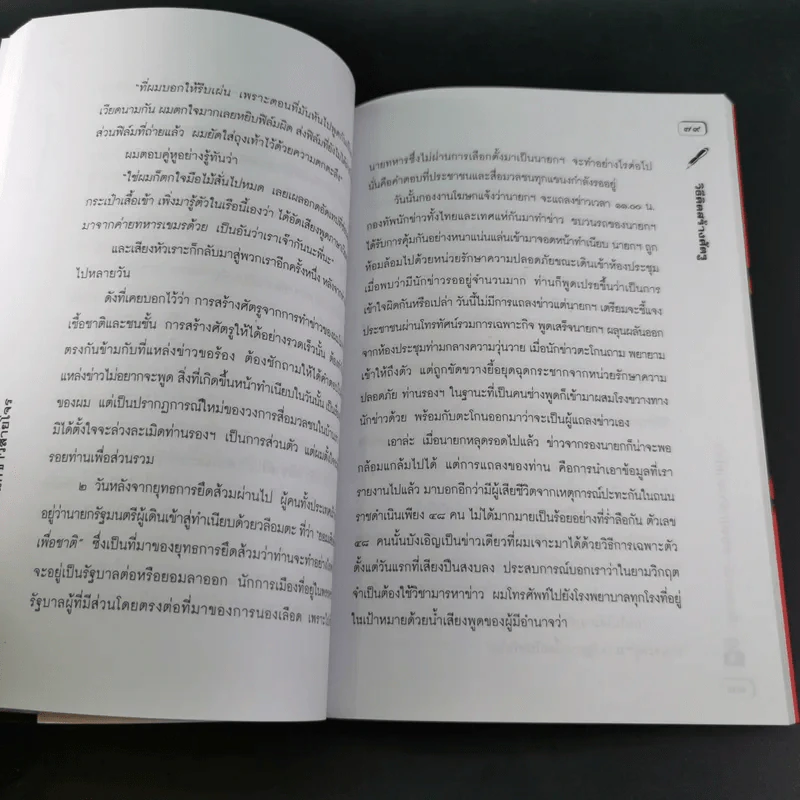 "ที่ผมบอกให้รีบเผ่น เพราะตอนที่มันหันไปพูด
เวียดนามกัน ผมตกใจมากเลยหยิบฟิล์มผิด ส่งฟิล์มที่ยังไม่ได้
ส่วนฟิล์มที่ถ่ายแล้ว ผมยัดใส่ถุงเท้าไว้ด้วยความตกตะลึง"
ผมตอบคู่หูอย่างรู้ทันว่า
"ใช่ผมก็ตกใจมือไม้สั่นไปหมด เลยเผลอกดอัดเทปที่
กระเป๋าเสื้อเข้า เพิ่งมารู้ตัวในเรือนี้เองว่า ได้อัดเสียงพูดภาษา
มาจากค่ายทหารเขมรด้วย เป็นอันว่าเราเจ๊ากันนะพี่นะ"
และเสียงหัวเราะก็กลับมาสู่พวกเราอีกครั้งหนึ่ง หลังจาก
ไปหลายวัน
ดังที่เคยบอกไว้ว่า การสร้างศัตรูจากการทำข่าวของ
เชื้อชาติและชนชั้น การสร้างศัตรูให้ได้อย่างรวดเร็วนั้น ต้อง
ตรงกันข้ามกับที่แหล่งข่าวขอร้อง ต้องซักถามให้ได้คำตอบ
แหล่งข่าวไม่อยากจะพูด สิ่งที่เกิดขึ้นหน้าทำเนียบในวันนั้น
ของผม แต่เป็นปรากฏการณ์ใหม่ของวงการสื่อมวลชนใน
มิได้ตั้งใจจะล่วงละเมิดท่านรองฯ เป็นการส่วนตัว แต่ผม
รอยท่านเพื่อส่วนรวม
๒ วันหลังจากยุทธการยึดส้วมผ่านไป ผู้คนทั้งประเทศ
อยู่ว่านายกรัฐมนตรีผู้เดินเข้าสู่ทำเนียบด้วยวลีอมตะ ที่ว่า
เพื่อชาติ" ซึ่งเป็นที่มาของยุทธการยึดส้วมว่าท่านจะทำอย่างไร
จะอยู่เป็นรัฐบาลต่อหรือยอมลาออก นักการเมืองที่อยู่ใน
รัฐบาลผู้ที่มีส่วนโดยตรงต่อที่มาของการนองเลือด
๗๙
วิธีคิดสร้างศัตรู
นายทหารซึ่งไม่ผ่านการเลือกตั้งมาเป็นนายกฯ จะทำอย่างไรต่อไป
นั่นคือคำตอบที่ประชาชนและสื่อมวลชนทุกแขนงกำลังรออยู่
วันนั้นกองงานโฆษกแจ้งว่านายกฯ จะแถลงข่าวเวลา ๑๑.๐๐ น.
กองทัพนักข่าวทั้งไทยและเทศแห่กันมาทำข่าว ขบวนรถของนายกฯ
ได้รับการคุ้มกันอย่างหนาแน่นแล่นเข้ามาจอดหน้าทำเนียบ นายกฯ ถูก
ห้อมล้อมไปด้วยหน่วยรักษาความปลอดภัยขณะเดินเข้าห้องประชุม
เมื่อพบว่ามีนักข่าวรออยู่จำนวนมาก ท่านก็พูดเปรยขึ้นว่าเป็นการ
เข้าใจผิดกันหรือเปล่า วันนี้ไม่มีการแถลงข่าวแต่นายกฯ เตรียมจะชี้แจง
ประชาชนผ่านโทรทัศน์รวมการเฉพาะกิจ พูดเสร็จนายกฯ ผลุนผลันออก
จากห้องประชุมท่ามกลางความวุ่นวาย เมื่อนักข่าวตะโกนถาม พยายาม
เข้าให้ถึงตัว แต่ถูกขัดขวางยื้อยุดฉุดกระชากจากหน่วยรักษาความ
ปลอดภัย ท่านรองฯ ในฐานะที่เป็นคนช่างพูดก็เข้ามาผสมโรงขวางทาง
นักข่าวด้วย พร้อมกับตะโกนออกมาว่าจะเป็นผู้แถลงข่าวเอง
เอาล่ะ เมื่อนายกหลุดรอดไปแล้ว ข่าวจากรองนายกก็น่าจะพอ
กล้อมแกล้มไปได้ แต่การแถลงของท่าน คือการนำเอาข้อมูลที่เรา
รายงานไปแล้ว มาบอกอีกว่ามีผู้เสียชีวิตจากเหตุการณ์ปะทะกันในถนน
ราชดำเนินเพียง ๔๘ คน ไม่ได้มากมายเป็นร้อยอย่างที่ร่ำลือกัน ตัวเลข
๔๘ คนนั้นบังเอิญเป็นข่าวเดียวที่ผมเจาะมาได้ด้วยวิธีการเฉพาะตัว
ตั้งแต่วันแรกที่เสียงปืนสงบลง ประสบการณ์บอกเราว่าในยามวิกฤต
จำเป็นต้องใช้วิชามารหาข่าว ผมโทรศัพท์ไปยังโรงพยาบาลทุกโรงที่อยู่
ในเป้าหมายด้วยน้ำเสียงพูดของผู้มีอำนาจว่า